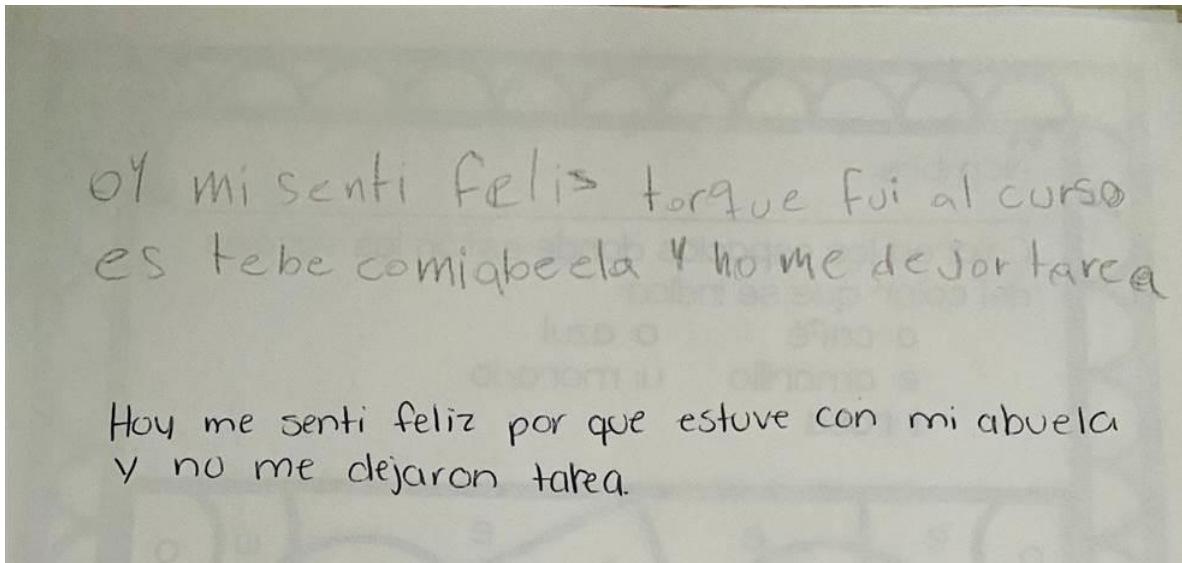 oy mi senti felis torque fui al curso
es tebe comiabeela y no me dejor tarea
Hoy me senti feliz por que estuve con mi abuela
y no me dejaron tarea.